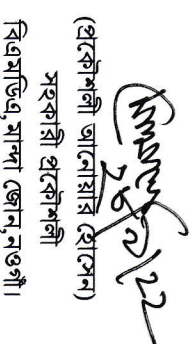 (প্রকৌশলী আনোয়ার হোসেন)
সহকারী প্রকৌশলী
বিএমডিএ, মান্দা জোন, নওগাঁ।